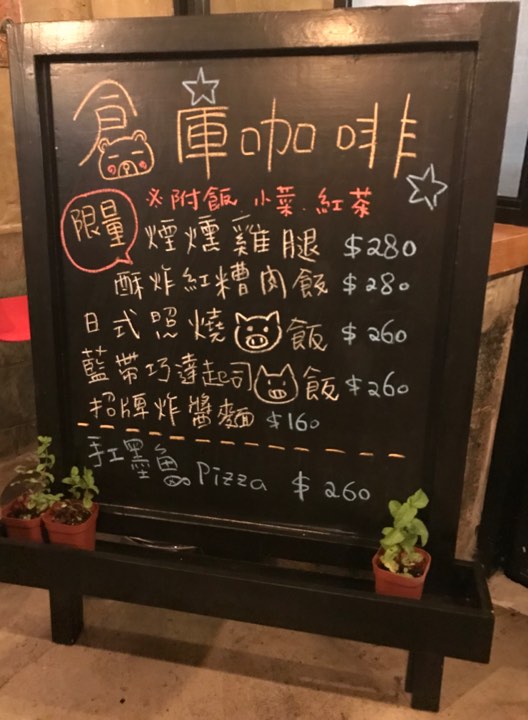 倉庫咖啡
※附飯.小菜.紅茶
限量
煙燻雞腿 $280
酥炸紅糟肉飯 $280
日式照燒飯 $260
藍帶巧達起司飯 $260
招牌炸醬麵 $160
手工墨魚 Pizza $260